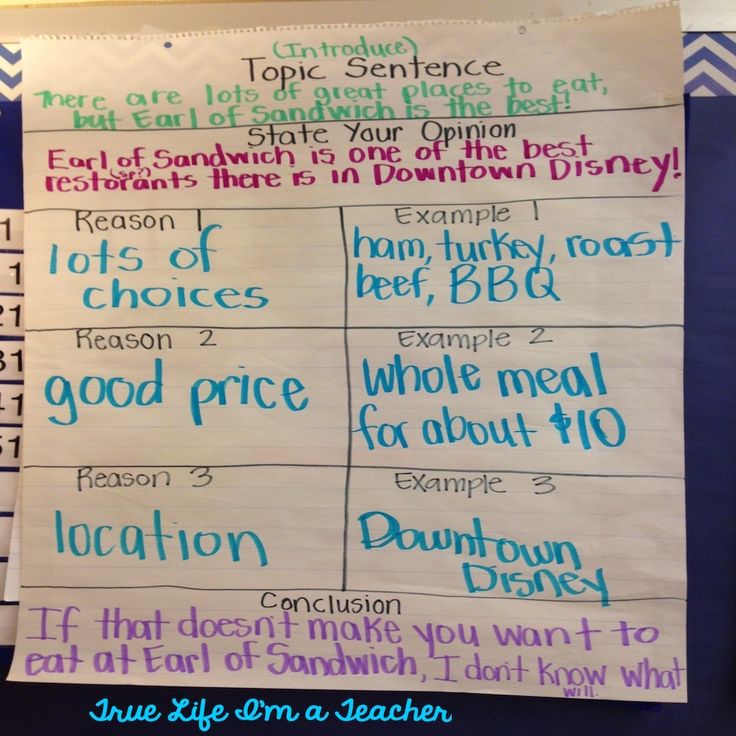 (Introduce)
Topic Sentence
There are lots of great places to eat,
but Earl of Sandwich is the best!
State Your Opinion
Earl of Sandwich is one of the best
(sp?)
restorants there is in Downtown Disney!
Reason 1
Example 1
lots of
choices
ham, turkey, roast
beef, BBQ
Reason 2
Example 2
good price
whole meal
for about $10
Reason 3
Example 3
location
Downtown
Disney
Conclusion
If that doesn't make you want to
eat at Earl of Sandwich, I don't know what
will.
True Life I'm a Teacher
1
1
21
31
41
51